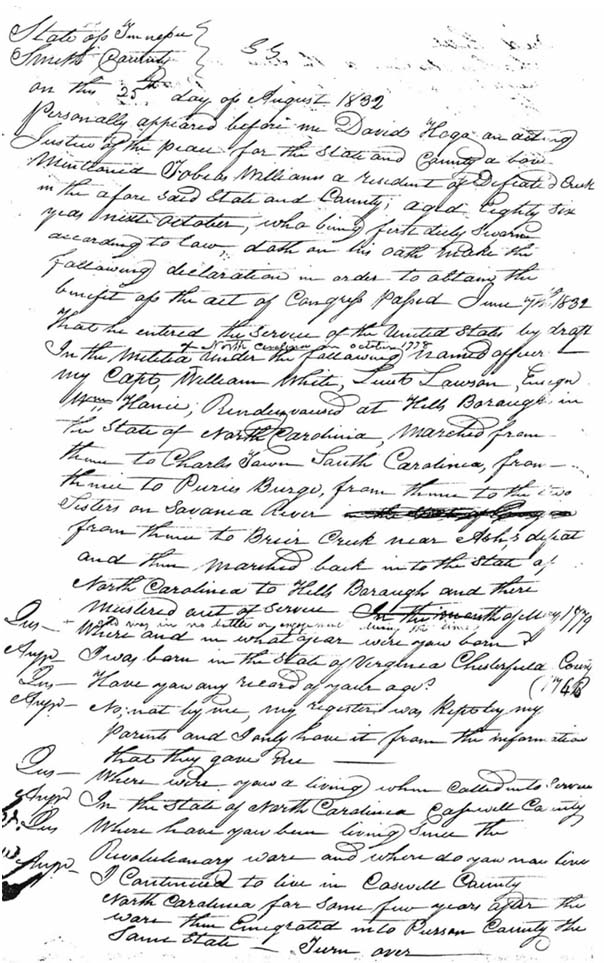 State of Tennessee
Smith County
SS
on this 25th day of August 1832
Personally appeared before me David Hoga an acting
Justice of the peace for the State and County a bove
Mintioned Tobeas Williams a resident of Defeated Creek
in the afore said State and County; aged Eighty six
years next October, who being first duly Sworn
according to law, doth on his oath make the
following declaration in order to obtain the
benefit of the act of Congress passed June 7th 1832
That he entered the Service of the United State by draft
of North Carolina in october 1778
In the Militia under the following named officer
my Capt, William White, Lieut Lawson, Ensign
Wm Hanie; Rendezvoused at Hills Borough in
the State of North Carolina, Marched from
thence to Charles Town South Carolina, from
thence to Puries Burge, from thence to the two
Sisters on Savanna River
from thence to Brier Creek near Ash,s defeat
and then marched back in to the State of
North Carolina to Hills Borough and there
Mustered out of Service In the month of May 1779
and was in no battle or engagement during the time
Qus — Where and in what year were you born?
Ansr — I was born in the State of Virginia Chesterfield County
(1746)
Qus — Have you any record of your age?
Ansr — No; not by me, my register was kept by my
Parents and I only have it from the information
that they gave me
Qus — Where were you a living when called into Service
Ansr In the State of North Carolina Caswell County
Qus Where have you been living Since the
Revolutionary ware and where do you now live
Ansr — I Continued to live in Caswell County
North Carolina for some few years after the
ware then Emigrated into Person County the
Same State — Turn over